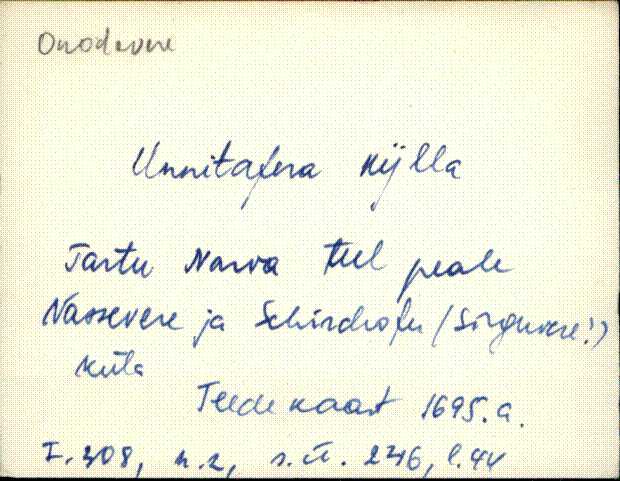 Onodavere
Unnitafera Kÿlla
Tartu Narva teel peale
Nassevere ja (Sõrguvere!)
küla
Teede kaart 1695.a.
F. 308, n. 2, s.ü. 246, l. 44